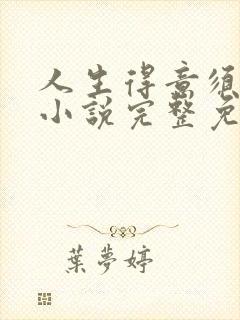 人生得意须
小說完整免
葉夢婷